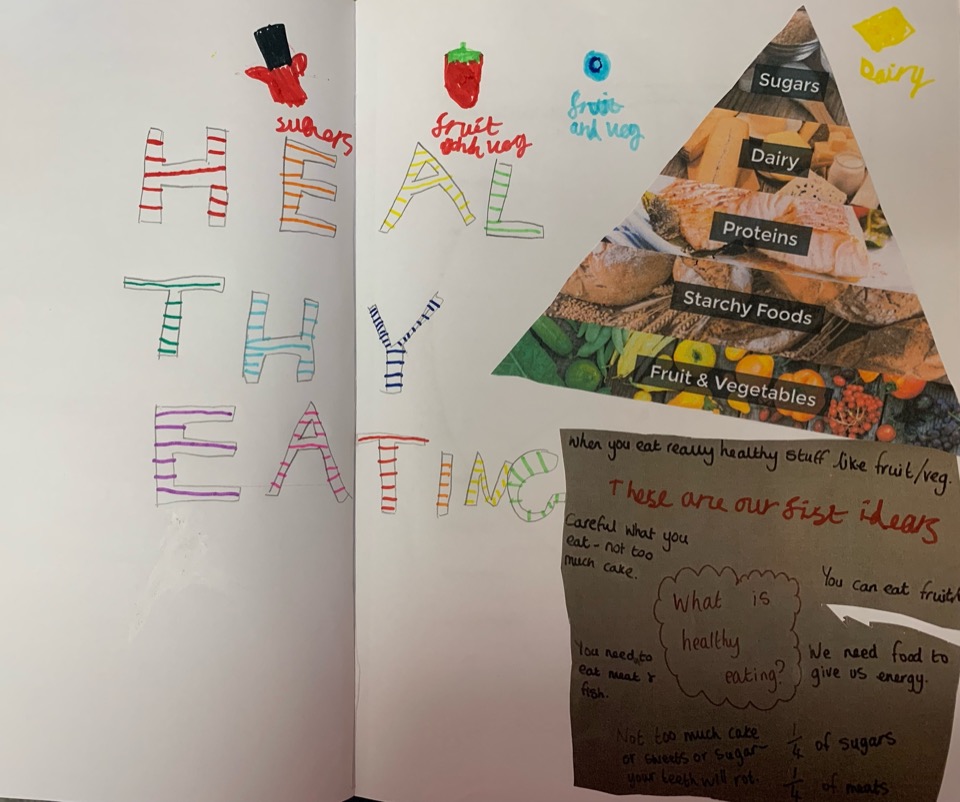 sugers
fruit
ahh veg
fruit
and veg
Dairy
HEAL
THY
EATING
Sugars
Dairy
Proteins
Starchy Foods
Fruit & Vegetables
When you eat really healthy stuff like fruit/veg.
These are our first idears
Careful what you
eat - not too
much cake.
You can eat fruit/
What is
healthy
eating?
You need to
eat meat &
fish.
We need food to
give us energy.
Not too much cake
or sweets or sugar-
your teeth will rot.
1/4 of sugars
1/4 of meats